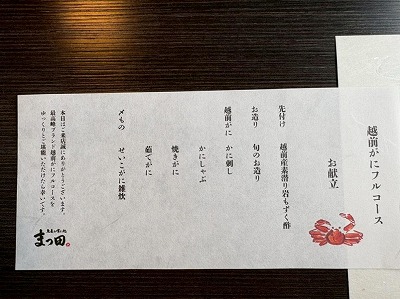 越前がにフルコース
お献立
先付け　越前産素潜り岩もずく酢
お造り　旬のお造り
越前がに　かに刺し
かにしゃぶ
焼きがに
茹でがに
〆もの　せいこがに雑炊
本日はご来店誠にありがとうございます。
最高峰ブランド越前がにフルコースを
ゆっくりとご堪能いただけたら幸いです。
まつ田